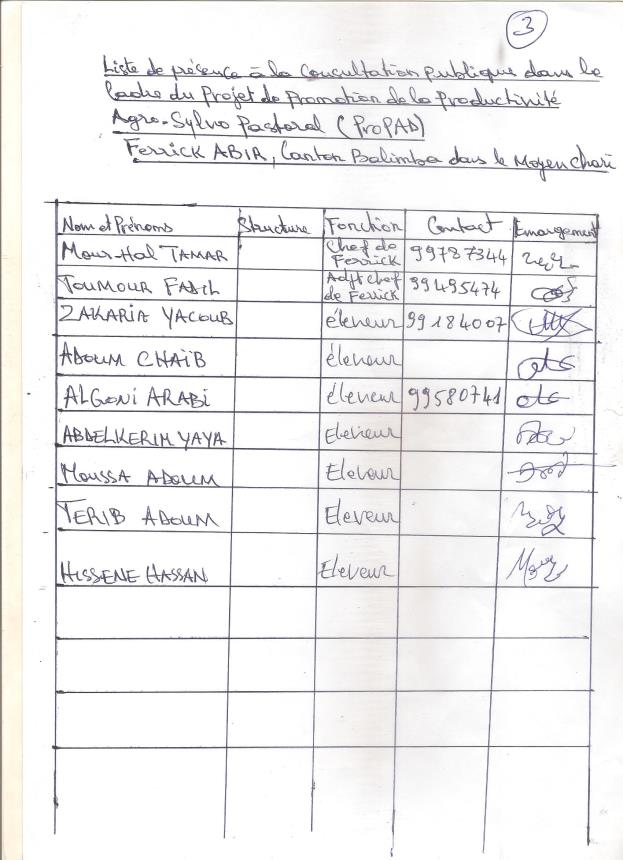 3
Liste de présence à la Consultation publique dans le
Cadre du Projet de Promotion de la Productivité
Agro-Sylvo Pastoral (ProPAD)
Ferrick ABIR, Canton Balimba dans le Moyen chari
Nom et Prénoms Structure Fonction Contact Emargement
Mour-Hal TAMAR Chef de Ferrick 99787344
TOUMOUR FADIL Adjt chef de Ferrick 99495474
ZAKARIA YACOUB éleveur 99184007
ADOUM CHAÏB éleveur
ALGONI ARABI éleveur 99580741
ABDELKERIM YAYA Eleveur
MOUSSA ADOUM Eleveur
TERIB ADOUM Eleveur
HISSENE HASSAN Eleveur